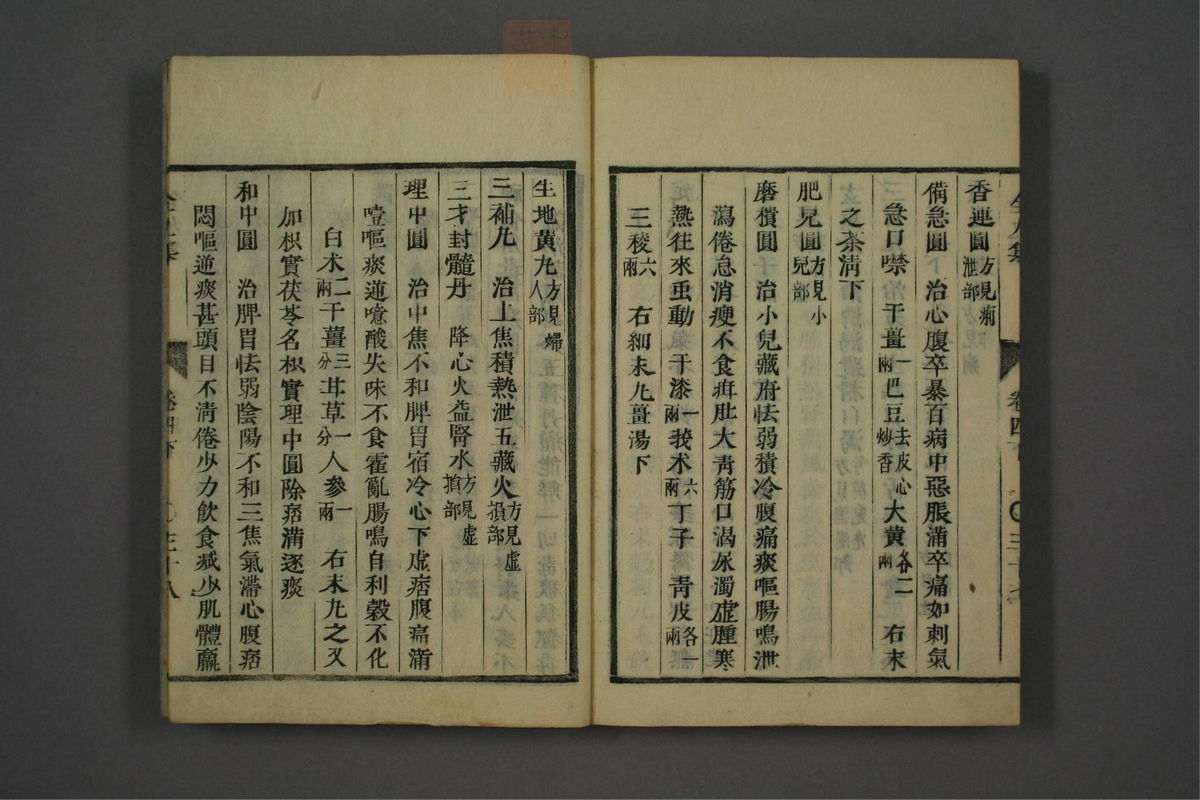 香連圓方見痢泄部
備急圓　治心腹卒暴百病中惡脹滿卒痛如刺氣
急口噤　干薑一兩巴豆去皮心炒香大黄各二兩　右末
之茶淸下
肥兒圓方見小兒部
磨積圓　治小兒藏府怯弱積冷腹痛痰嘔腸鳴泄
瀉倦怠消瘦不食疳肚大靑筋口渴尿濁虛腫寒
熱往來虫動　干漆一兩莪术六兩丁子　靑皮各一兩
三稜六兩　右細末丸薑湯下
生地黄丸方見婦人部
三補丸　治上焦積熱泄五藏火方見虛損部
三才封髓丹　降心火益腎水方見虛損部
理中圓　治中焦不和脾胃宿冷心下虛痞腹痛滿
噎嘔痰逆噫酸失味不食霍亂腸鳴自利穀不化
白朮二兩干薑三分耳草一分人參一兩　右末丸之又
加枳實茯苓名枳實理中圓除痞滿逐痰
和中圓　治脾胃怯弱陰陽不和三焦氣滯心腹痞
悶嘔逆痰甚頭目不淸倦少力飮食减少肌體羸
卷四下
三十八